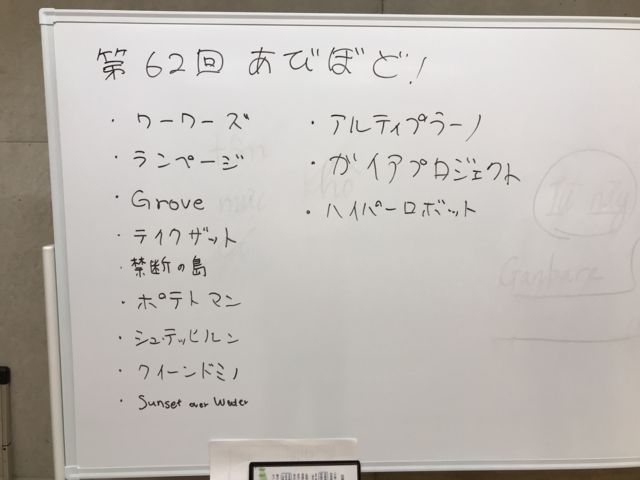 第62回 あびぼど!
・ワーワーズ
・ランページ
・Grove
・テイクザット
・禁断の島
・ポテトマン
・シュテッヒルン
・クイーンドミノ
・Sunset over Water
・アルティプラーノ
・ガイアプロジェクト
・ハイパーロボット
Ganbare